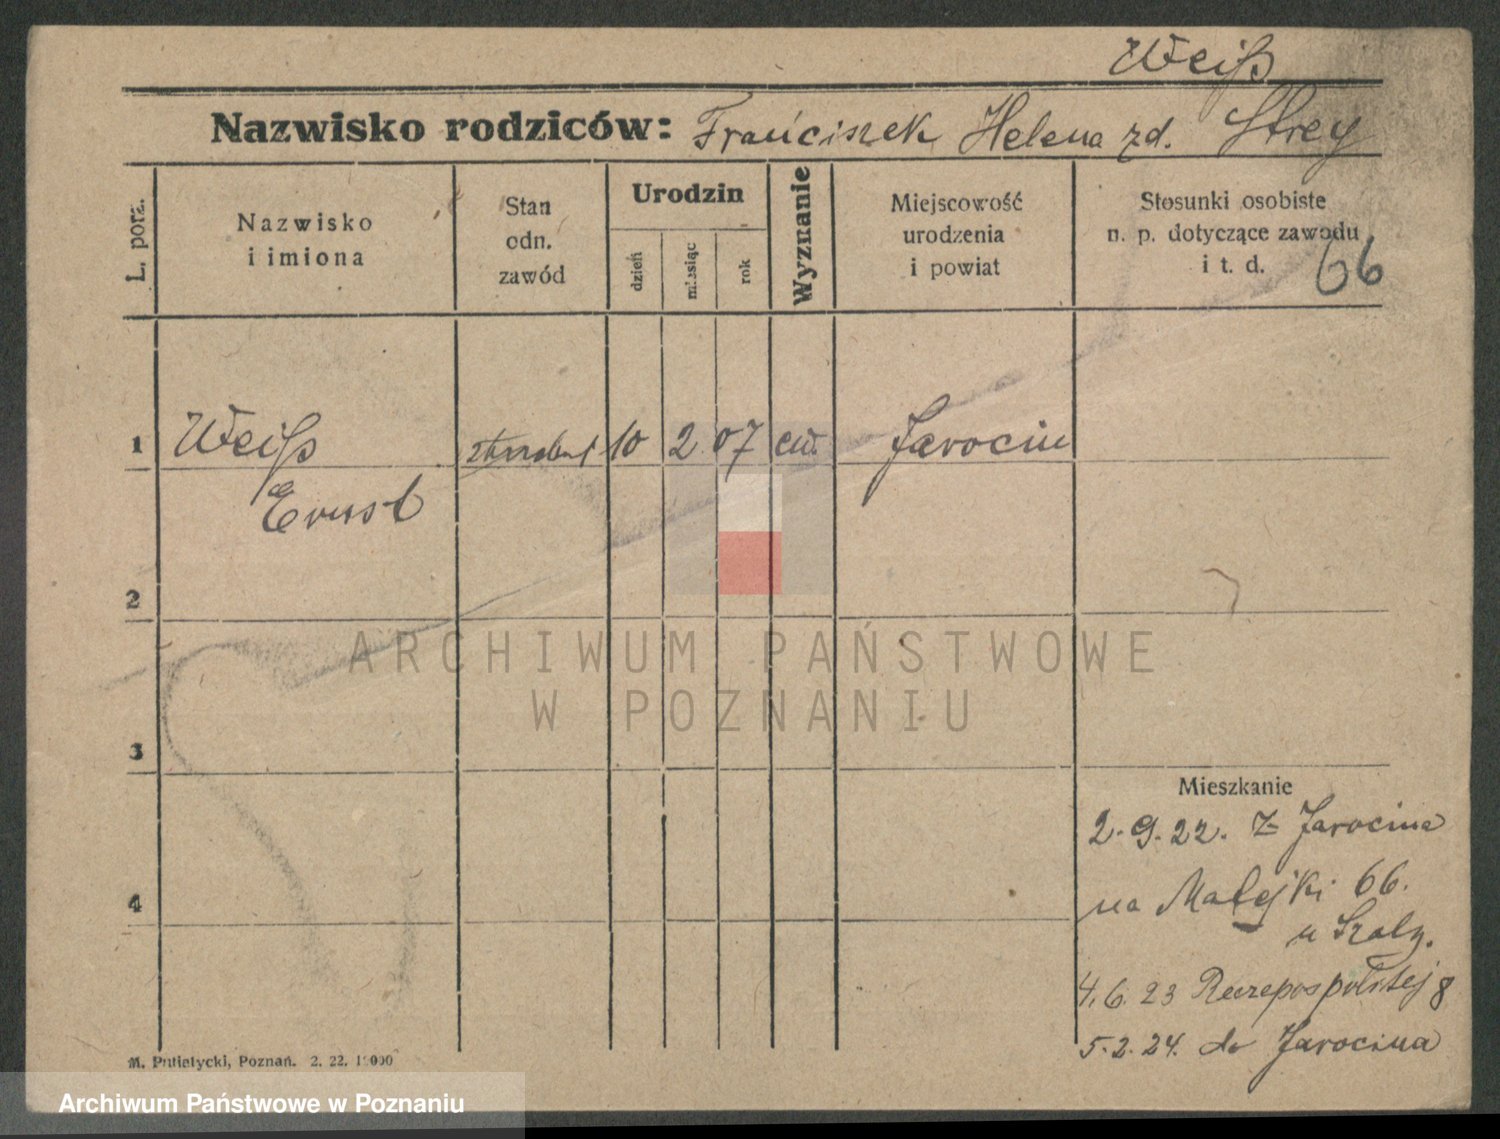 Weiß
Nazwisko rodziców: Franciszek Helena zd. Strey
L. porz.
Nazwisko
i imiona
Stan
odn.
zawód
Urodzin
dzień
miesiąc
rok
Wyznanie
Miejscowość
urodzenia
i powiat
Stosunki osobiste
n. p. dotyczące zawodu
i t. d.
66
1 Weiß 10 2 07 ew. Jarocin
Ernst
2
3
4
Mieszkanie
2.9.22. z Jarocina
na Matejki 66.
u
4.6.23 Rzeczpospolitej 8
5.2.24. do Jarocina
M. Putiatycki, Poznań. 2. 22. 1
ARCHIWUM PAŃSTWOWE
W POZNANIU
Archiwum Państwowe w Poznaniu